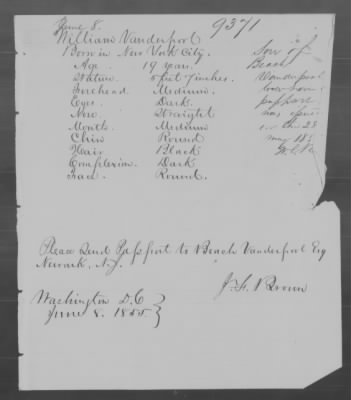 June 8.
9371
William Vanderpool
Born in New York City.
Son of
Age 19 years.
Beach
Stature 5 feet 7 inches.
Vanderpool
Forehead Medium.
Eyes Dark.
passport
Nose Straight
was
Mouth Medium
Chin Round
Hair Black
Complexion. Dark
Face Round.
Please Send Passport to Beach Vanderpool Esq
Newark, N.J.
J. F. Brown
Washington D.C
June 8. 1855